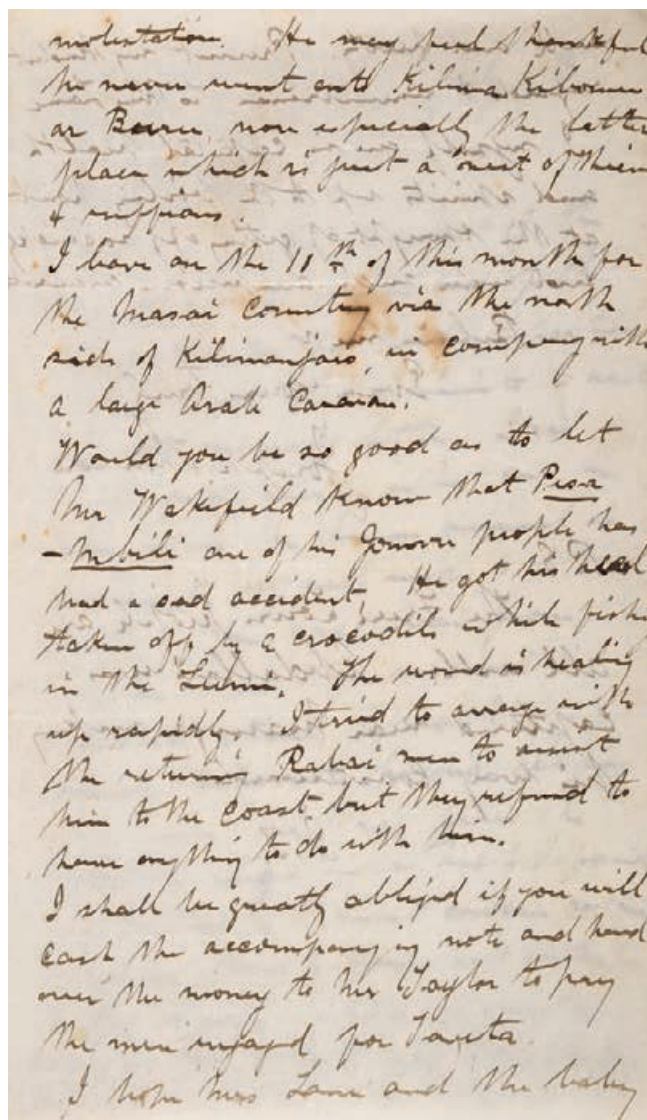 molestation. He may feel thankful
he never went onto Kilima Kibomu
or Bura more especially the latter
place which is just a nest of thieves
& ruffians.
I leave on the 10th of this month for
the Masai Country via the north
side of Kilimanjaro, in company with
a large Arab Caravan.
Would you be so good as to let
Mr Wakefield know that
-Mbili one of his Jomvu people has
had a sad accident, He got his hand
taken off by a crocodile while fishing
in the Lumi. The wound is healing
up rapidly. I tried to arrange with
the returning Rabai men to assist
him to the Coast but they refused to
have anything to do with him.
I shall be greatly obliged if you will
cash the accompanying note and hand
over the money to Mr Taylor to pay
the men engaged for Taveta.
I hope Mrs Lane and the baby